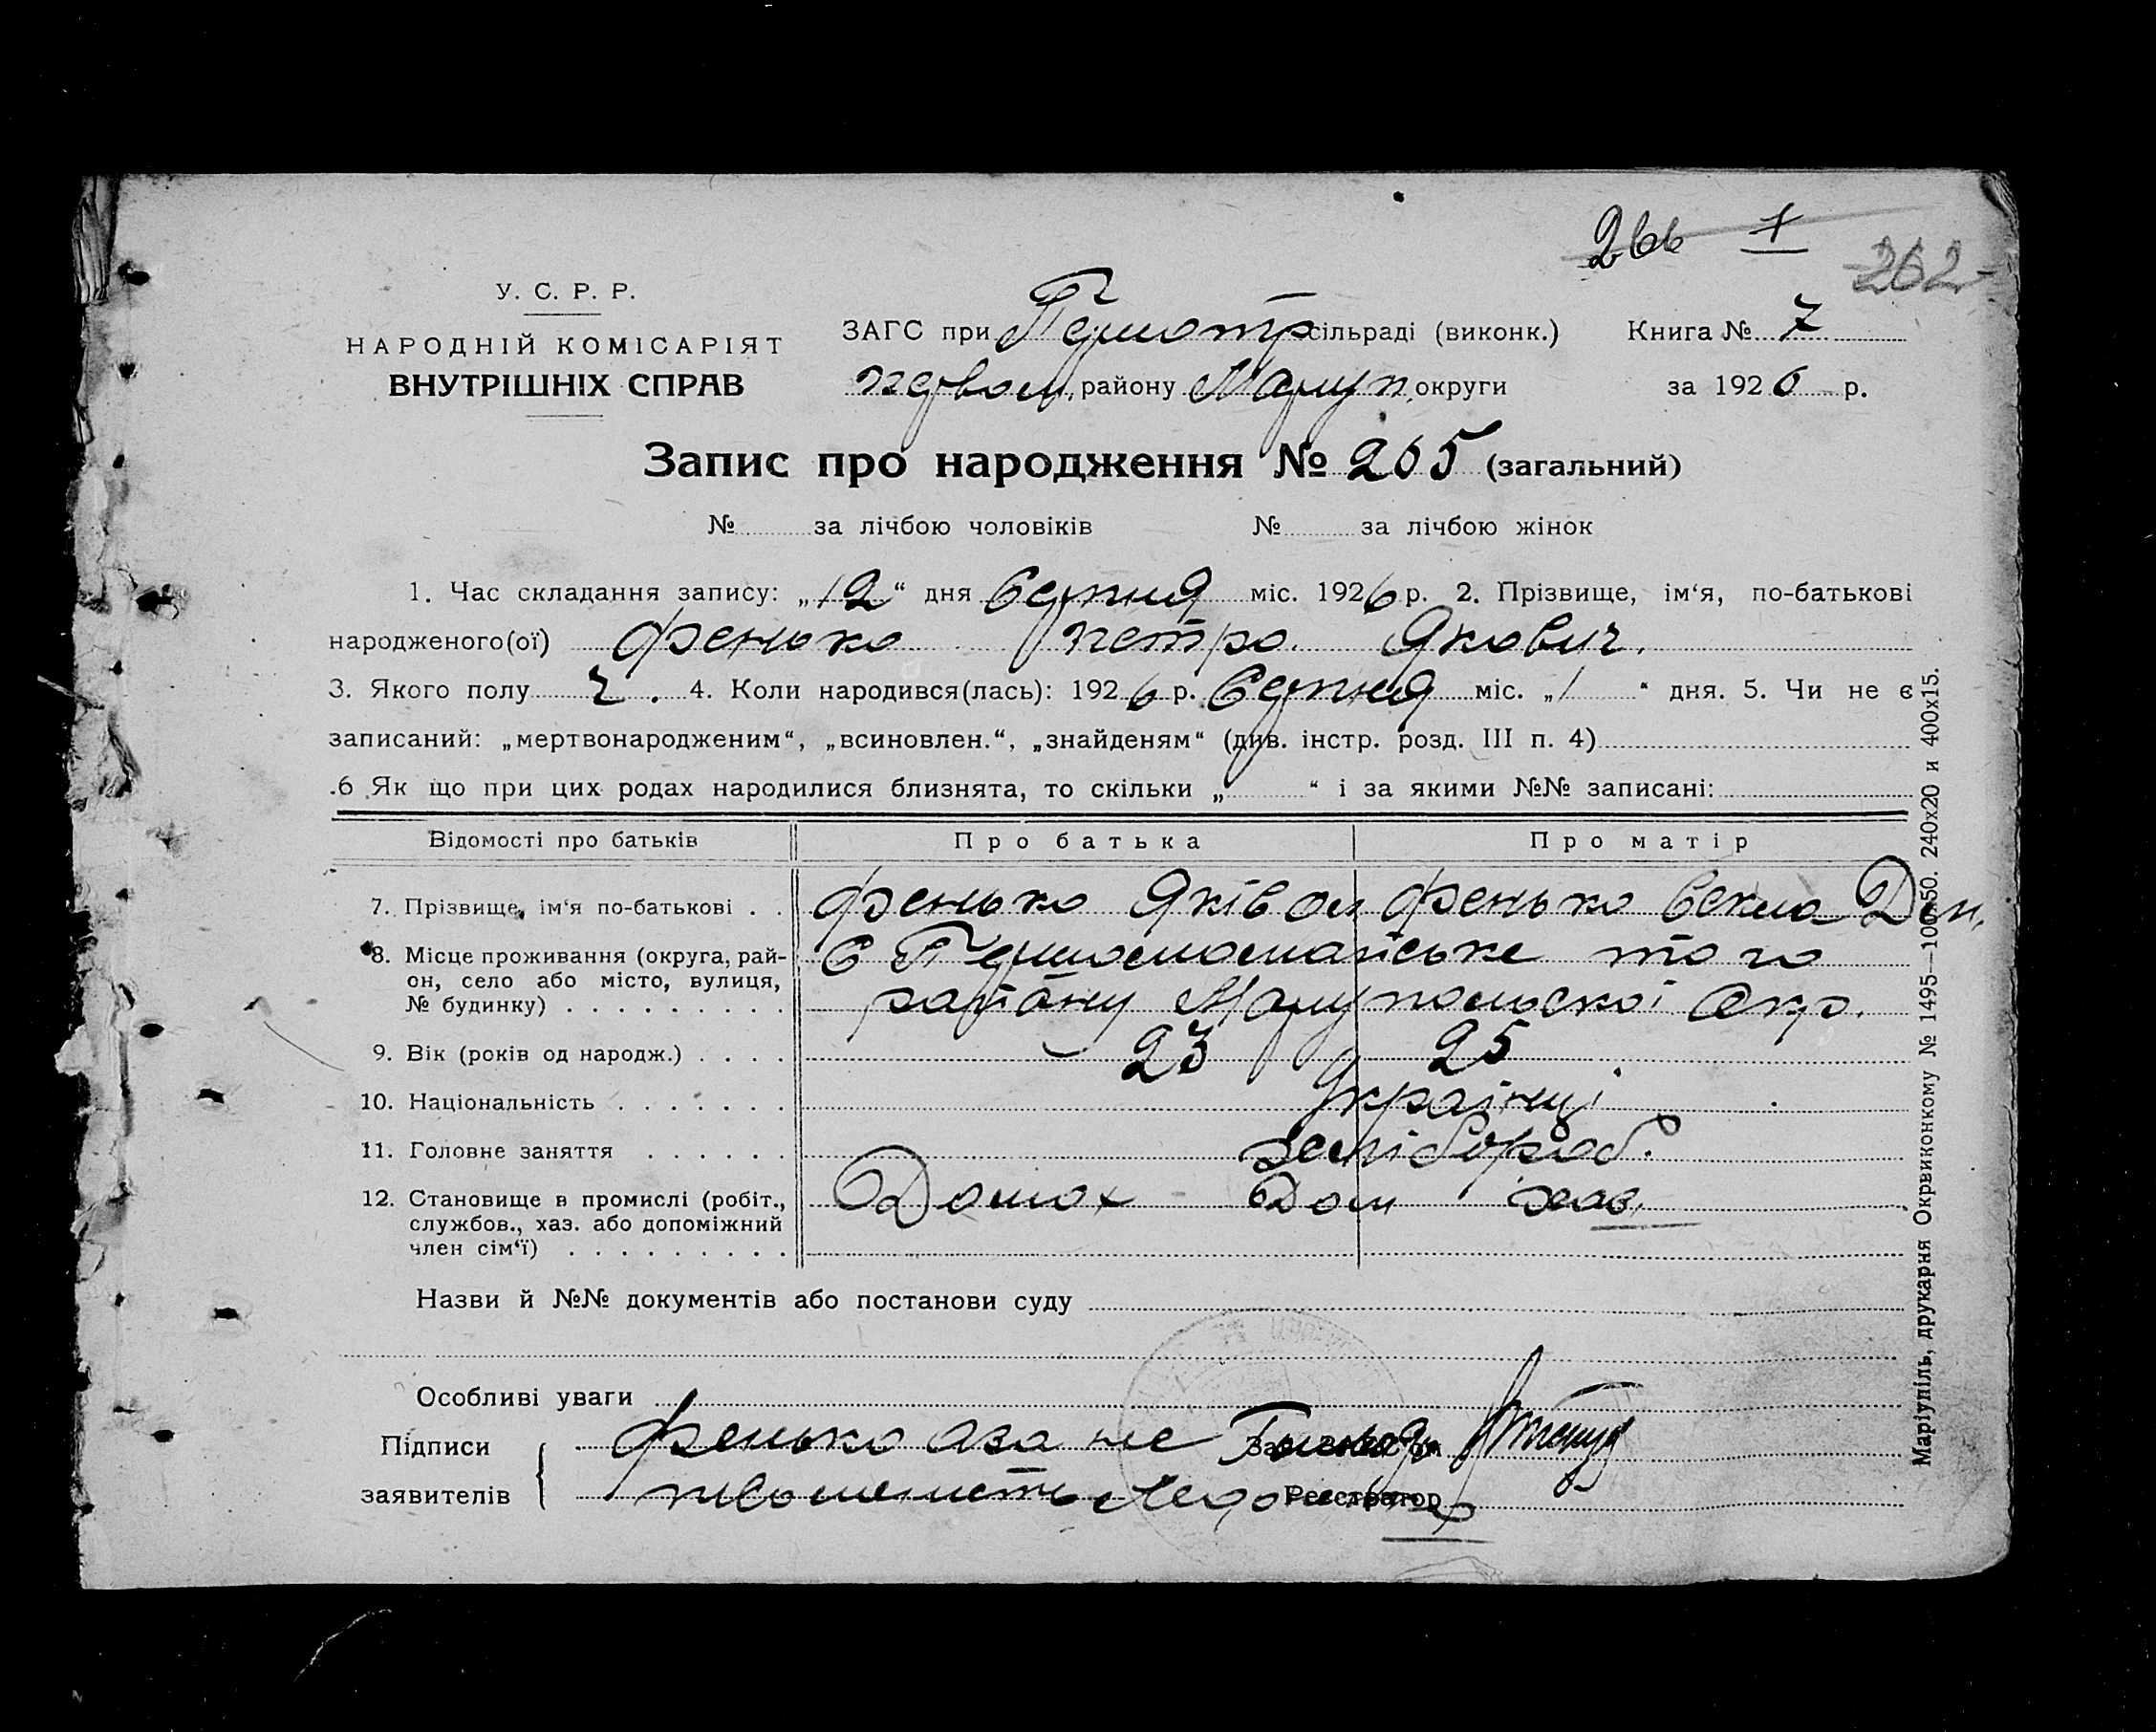 266 1
262
У. С. Р. Р.
НАРОДНІЙ КОМІСАРІЯТ
ВНУТРІШНІХ СПРАВ
ЗАГС при сільраді (виконк.) Книга № 7
району Маріуп. округи за 1926 р.
Запис про народження № 265 (загальний)
№ за лічбою чоловіків № за лічбою жінок
1. Час складання запису: „12“ дня Серпня міс. 1926 р. 2. Прізвище, ім‘я, по-батькові
народженого(ої) Фенько Петро Якович.
3. Якого полу ч. 4. Коли народився(лась): 1926 р. Серпня міс. „1“ дня. 5. Чи не є
записаний: „мертвонародженим“, „всиновлен.“, „знайденям“ (див. інстр. розд. III п. 4)
.6 Як що при цих родах народилися близнята, то скільки „ “ і за якими №№ записані:
Відомості про батьків Про батька Про матір
7. Прізвище, ім‘я по-батькові . . Фенько Яків Фенько Векла Дем.
8. Місце проживання (округа, рай-
он, село або місто, вулиця,
№ будинку) . . . . . . . . .
С Першомайське того
району Маріупольскоі Окр.
9. Вік (років од народж.) . . . . 23 25
10. Національність . . . . . . . Украінці
11. Головне заняття . . . . . . хлібороб.
12. Становище в промислі (робіт.,
службов., хаз. або допоміжний
член сім‘ї) . . . . . . . . .
Домох Дом хаз.
Назви й №№ документів або постанови суду
Особливі уваги
Підписи
заявителів
Фенько аза не
Зав.
Реєстратор
Маріупіль, друкарня Окрвиконкому № 1495—100х50. 240х20 и 400х15.